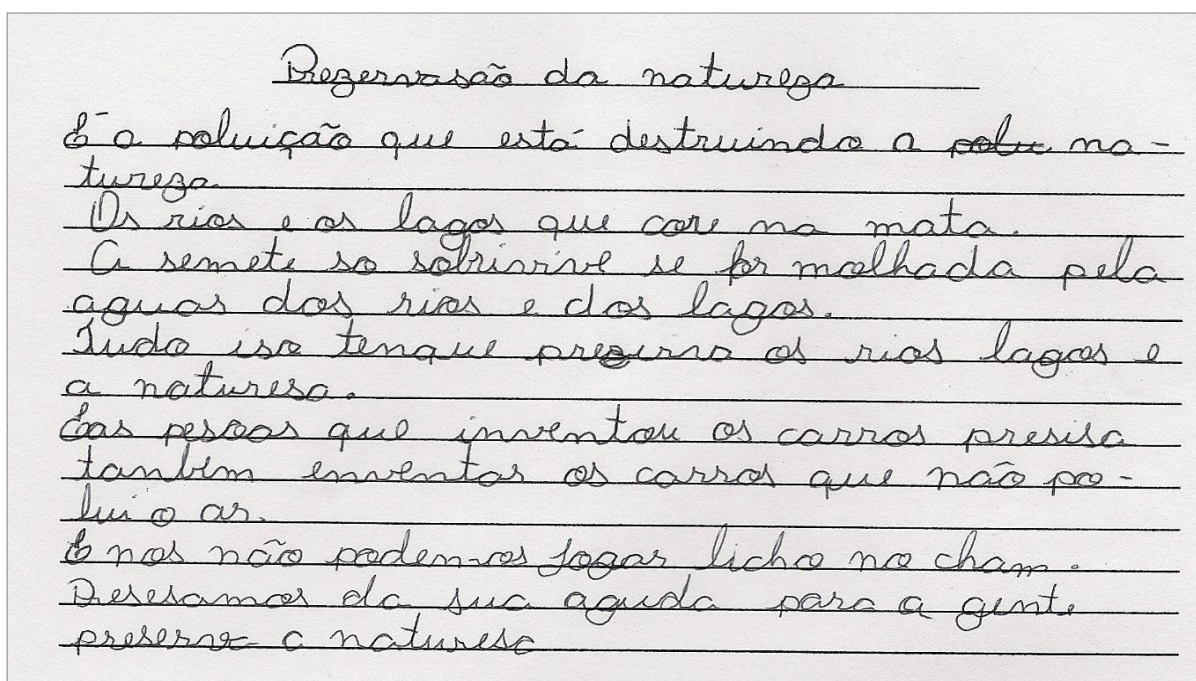 Prezervasão da natureza
É a poluição que está destruindo a polu na-
tureza.
Os rios e os lagos que core na mata.
A semete so sobrivive se for molhada pela
aguas dos rios e dos lagos.
Tudo iso tenque prezerva os rios lagos e
a naturesa.
Eas pesoas que inventou os carros presisa
tanbem enventar os carros que não po-
lui o ar.
E nos não podem-os jogar licho no cham.
Presesamos da sua aguda para a gente
preserve a naturesa